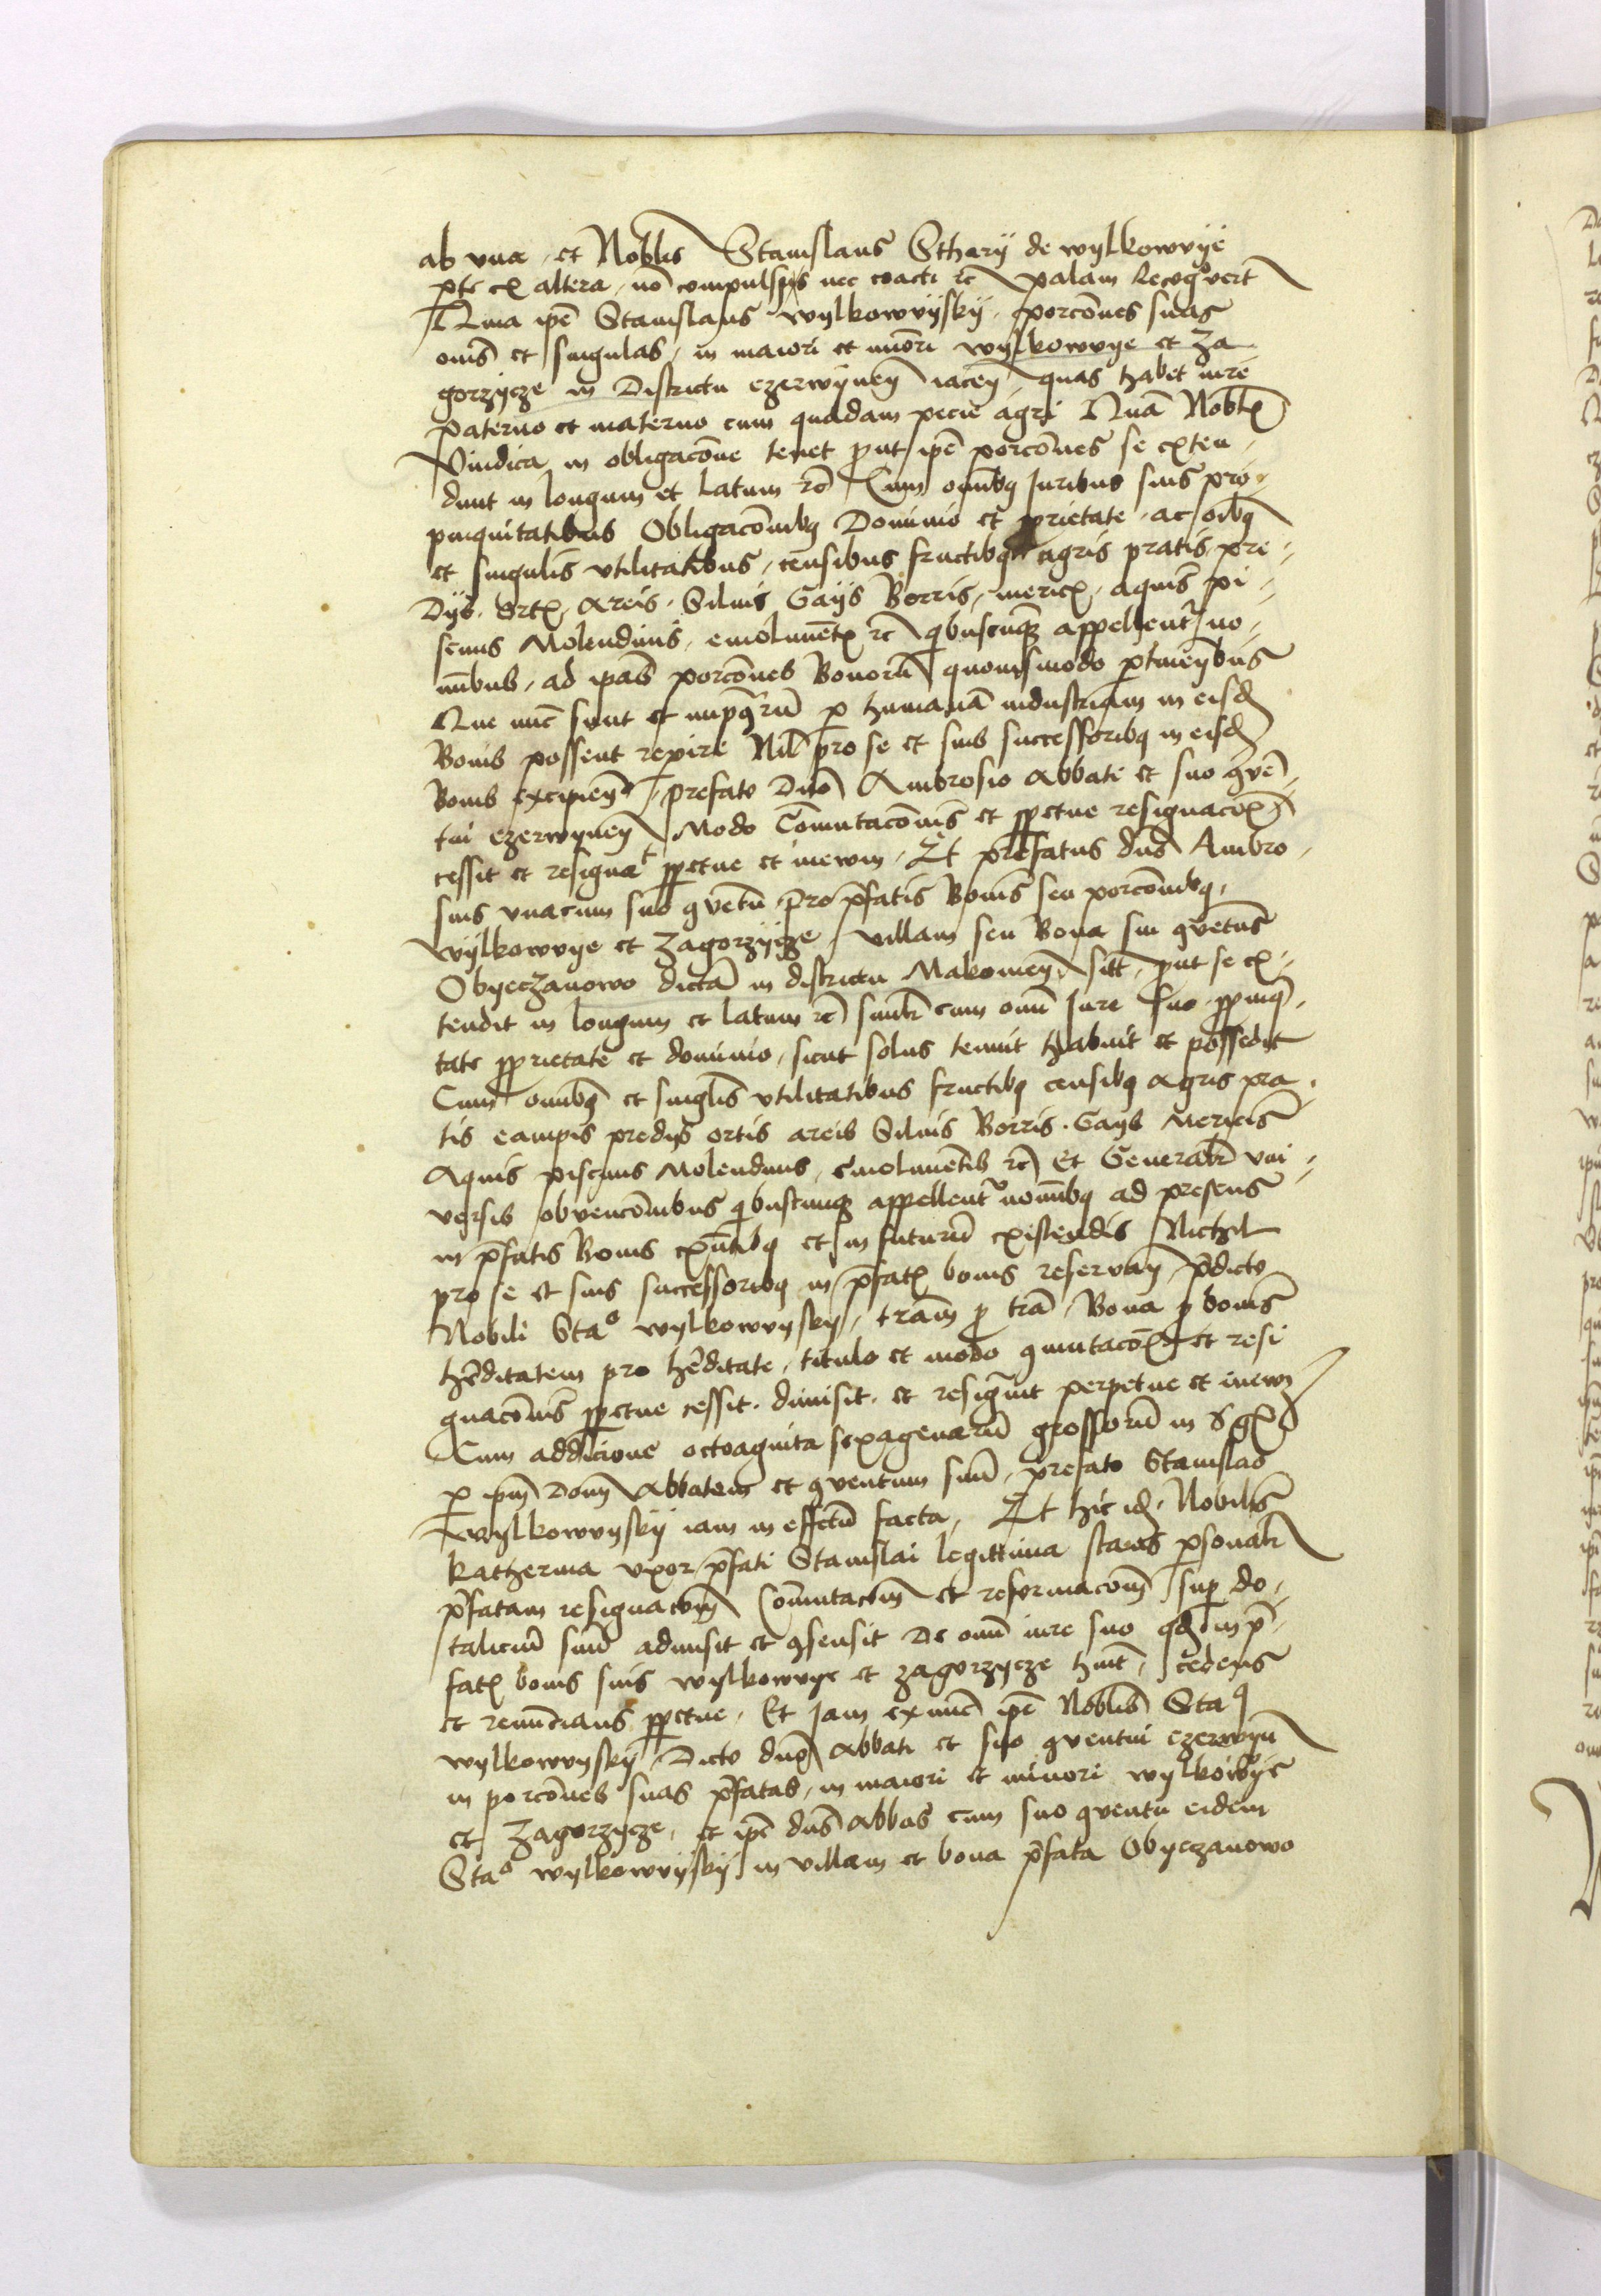 ab vna et Noblis Stanislaus Sthary de wylkowyye
pte ex altera, no compulsi nec coacti rc palam Recogvert
Quia ipe Stanislaus wylkowyysky porcoes suas
omis et singulas, in maiori et miori wylkowyye et Za
gorzycze in Districtu czerwyney iacey quas habet iure
paterno et materno cum quadam pecie agri Qua Nobl
Vindica in obligacoe tenet put ipe porcoes se exten
dunt in longum et latum rc Cum omibq Iuribus suis pro
pinquitatibus Obligacoibq Dominio et prietate ac oibq
et singulis vtilitatibus, censibus fructibq agris pratis pre
Dys. Ort, Areis. Siluis Gays Borris, meric, aquis pi
scinis Molendinis, emolumet rc qbuscuq appellent no
minbus, ad ipas porcoes Bonoru quouismodo ptineybus
Que nuc sunt et inpqru p humana industriam in eisd
Bonis possent repire Nil pro se et suis successoribq in eisd
Bonis excipiey, prefato Dno Ambrosio Abbati et suo qve
tui czerwyney Modo Comutacois et ppetue resignacois
cessit et resignat ppetue et inewm, Et prefatus dns Ambro
sius vnacum suo qvetu pro pfatis Bonis seu porcoibq
wylkowyye et Zagorzycze, villam seu Bona sui qvetus
Obyeczanowo dicta in districtu Makowiey sitt, put se ex
tendit in longum et latum rc simlr cum omi Iure suo ppinq
tate pprietate et dominio, sicut solus tenuit habuit et possedit
Cum omibq et singlis vtilitatibus fructibq censibq agris pra
tis campis predys ortis areis Siluis Borris. Gays Mericis
Aquis piscinis Molendinis, emolumetis rc Et Generalr vni
versis obvencoibus qbuscunq appellent nominbq ad presens
in pfatis Bonis exntibq et in futuru existendis Nichil
pro se et suis successoribq in pfat bonis reservay, pdicto
Nobili Stao wylkowyysky, tram p tra, Bona p bonis
heditatem pro heditate, titulo et modo qmutacois et resi
gnacois ppetue cessit. dimisit. et resignuit perpetue et inewm
Cum addicione octoaginta sexagenaru grossoru in
p ipm Dom Abbatem et qventum suu, prefato Stanislao
wylkowyysky iam in effctu facta, Et hic id Nobilis
Katherina vxor pfati Stanislai legittima stans psonalr
pfatam resignacom Comutacom et reformacom sup do
taliciu suu admisit et qsensit De omi iure suo qd in p
fat bonis suis wylkowyye et Zagorzycze huit, cedens
et renuncians ppetue. Et Iam exnuc ipe Noblis Staq
wylkowyysky Dicto dno Abbati et suo qventui czerwyn
in porcoes suas pfatas, in maiori et minori wylkowyye
et Zagorzycze, et ipe dns Abbas cum suo qventu eidem
Stao wylkowyysky in villam et bona pfata Obyeczanowo